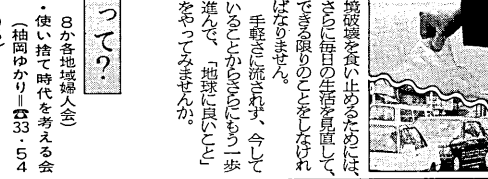 境破壊を食い止めるためには、
さらに毎日の生活を見直して、
できる限りのことをしなけれ
ばなりません。
手軽さに流されず、今して
いることからさらにもう一歩
進んで、「地球に良いこと」
をやってみませんか。
って?
8か各地域婦人会)
・使い捨て時代を考える会
(柚岡ゆかり=☎33・54